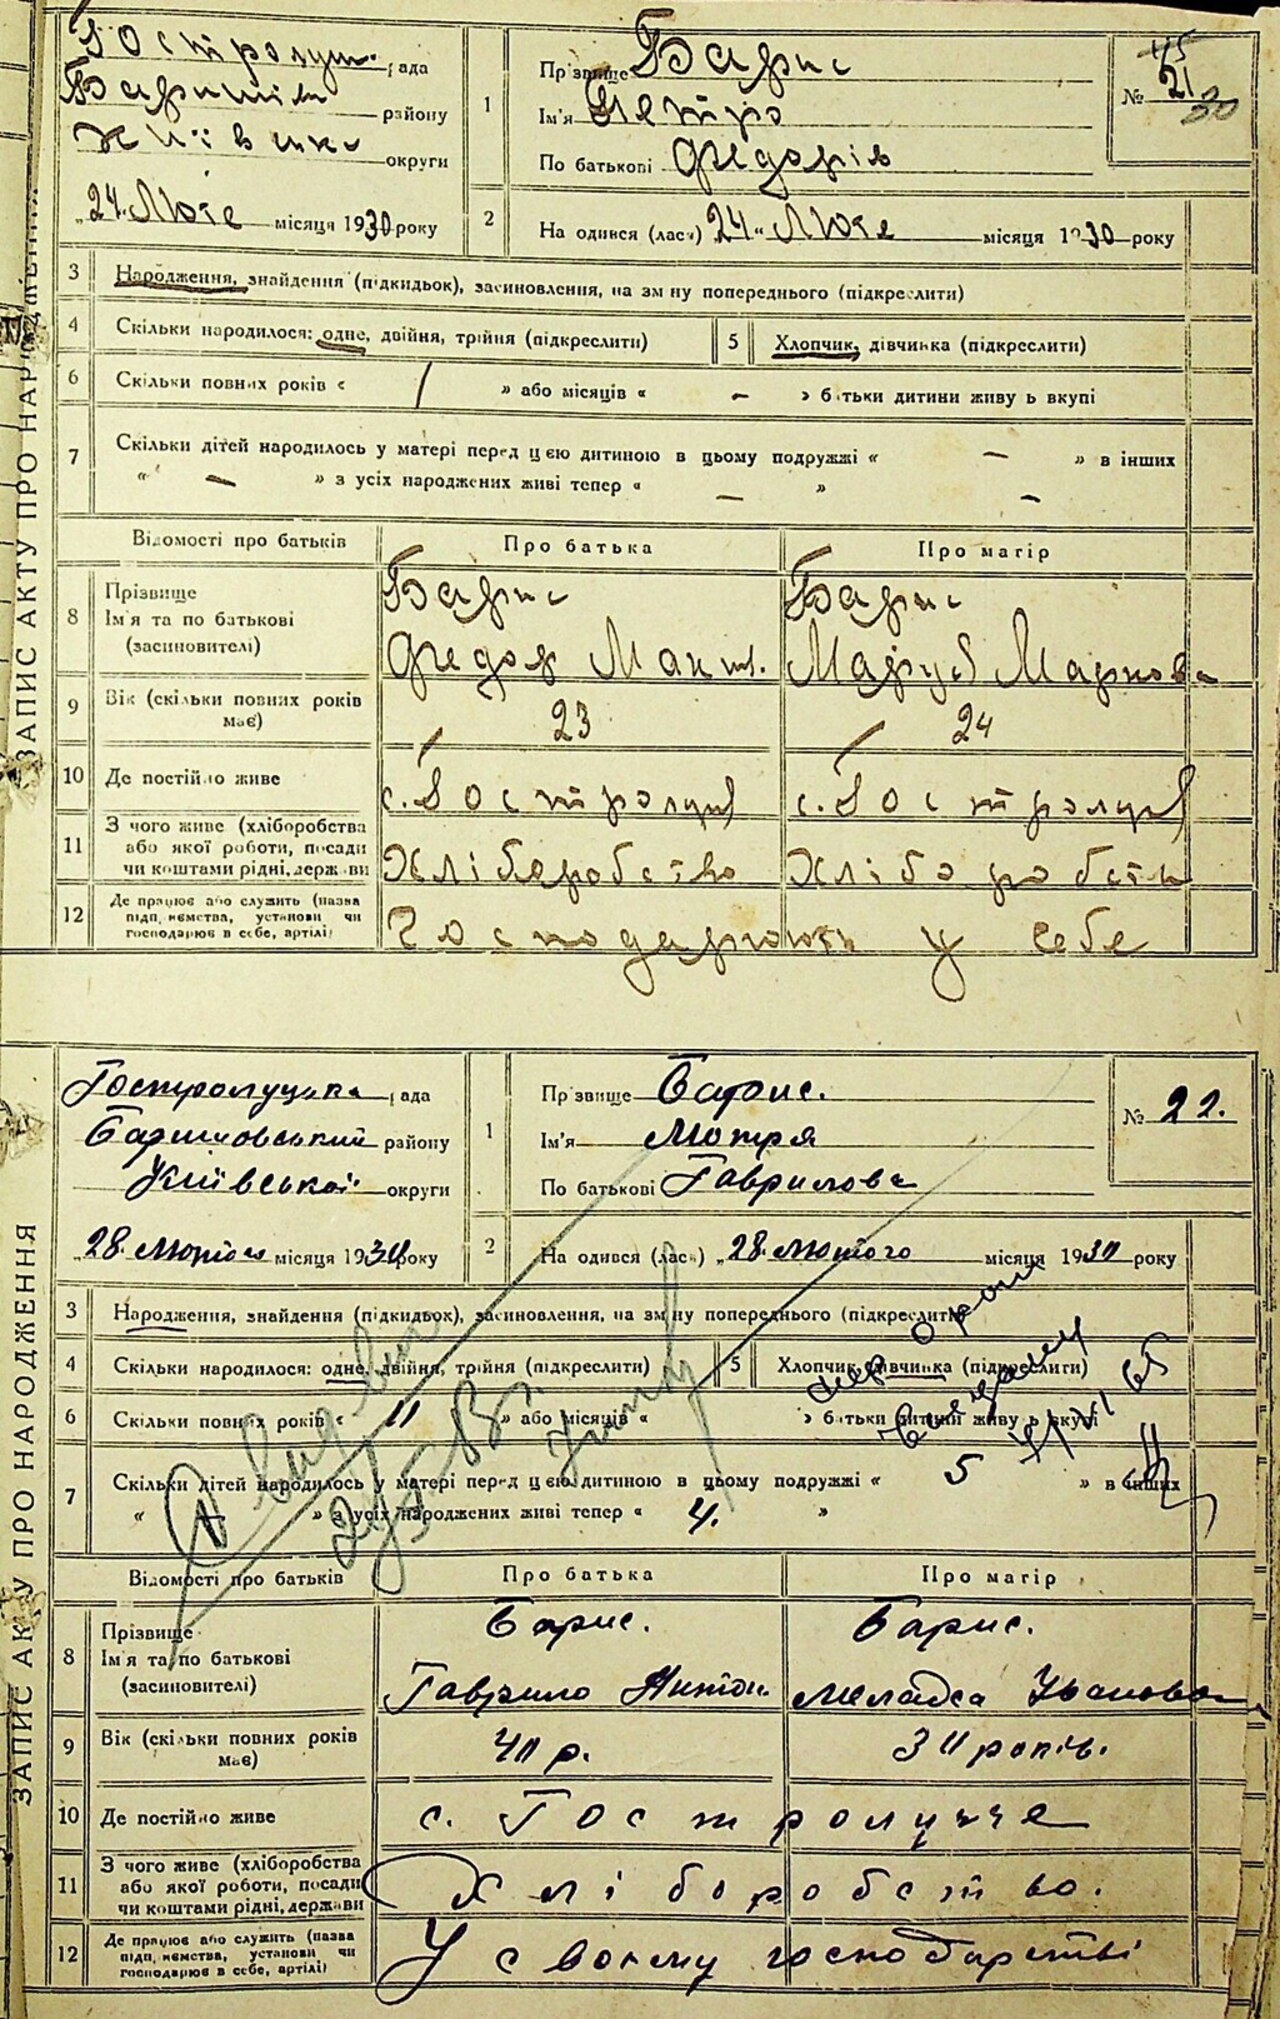 ЗАПИС АКТУ ПРО НАРОДЖЕННЯ
Гостролуц. рада
Баришів району
Київська округи
"24" Люте місяця 1930 року
1
Прізвище Барис
Ім'я Петро
По батькові Федорів
№ 21
2
Народився (лась) "24" Люте місяця 1930 року
3 Народження, знайдення (підкидьок), засиновлення, на зміну попереднього (підкреслити)
4 Скільки народилося: одне, двійня, трійня (підкреслити)
5 Хлопчик, дівчинка (підкреслити)
6 Скільки повних років « / » або місяців « – » батьки дитини живуть вкупі
7 Скільки дітей народилось у матері перед цією дитиною в цьому подружжі « – » в інших
« – » з усіх народжених живі тепер « – » –
Відомості про батьків Про батька Про матір
8 Прізвище
Ім'я та по батькові
(засиновителі)
Барис Барис
Федор Маки. Маруся Маркова
9 Вік (скільки повних років має) 23 24
10 Де постійно живе с. Гостролуч с. Гостролуч
11 З чого живе (хліборобства або якої роботи, посади чи коштами рідні, держави Хліборобство Хліборобств
12 Де працює або служить (назва підприємства, установи чи господарює в себе, артілі) Господарюють у себе
ЗАПИС АКТУ ПРО НАРОДЖЕННЯ
Гостролуцька рада
Баришовський району
Київської округи
"28" лютого місяця 1930 року
1
Прізвище Барис.
Ім'я Мотря
По батькові Гаврилова
№ 22.
2
Народився (лась) "28" лютого місяця 1930 року
3 Народження, знайдення (підкидьок), засиновлення, на зміну попереднього (підкреслити)
4 Скільки народилося: одне, двійня, трійня (підкреслити)
5 Хлопчик, дівчинка (підкреслити)
6 Скільки повних років « 11 » або місяців « » батьки дитини живуть вкупі
7 Скільки дітей народилось у матері перед цією дитиною в цьому подружжі « 5 » в інших
« » з усіх народжених живі тепер « 4. »
Відомості про батьків Про батька Про матір
8 Прізвище
Ім'я та по батькові
(засиновителі)
Барис. Барис.
Гаврило Антон. Меладса Ивановна
9 Вік (скільки повних років має) 40 р. 30 років.
10 Де постійно живе с. Гостролуччє
11 З чого живе (хліборобства або якої роботи, посади чи коштами рідні, держави Хліборобство.
12 Де працює або служить (назва підприємства, установи чи господарює в себе, артілі) У своєму господарстві